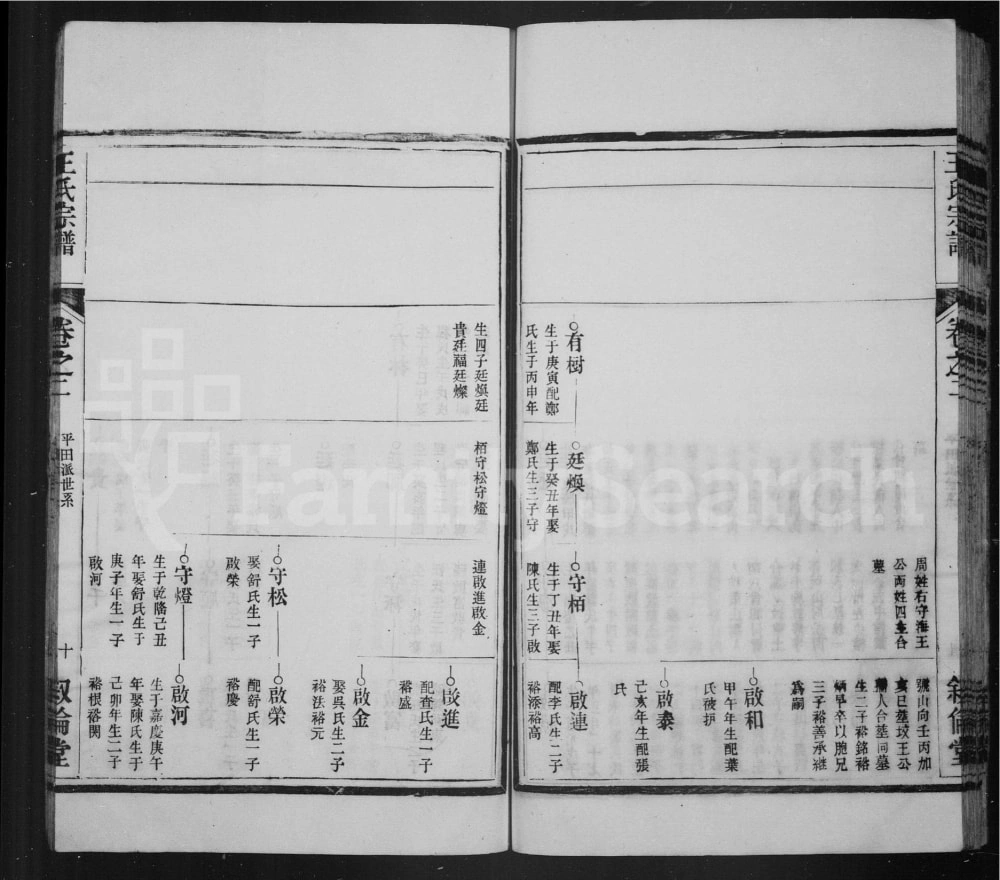 王氏宗譜
卷之二
敘倫堂
周姓右守海王
公兩姓四至合
墓
號山向壬丙加
亥巳塋坟王公
生二子裕銘裕
炳早卒以胞兄
三子裕善承継
爲嗣
啟和
甲午年生配葉
氏被护
啟泰
己亥年生配張
氏
有樹
生于庚寅配鄭
氏生于丙申年
廷煥
生于癸丑年娶
鄭氏生三子守
守栢
生于丁丑年娶
陳氏生三子啟
啟連
配李氏生二子
裕添裕高
生四子廷煥廷
貴廷福廷燦
栢守松守燈
連啟進啟金
啟進
配查氏生一子
裕盛
啟金
娶吳氏生二子
裕法裕元
守松
娶舒氏生一子
啟榮
啟榮
配舒氏生一子
裕慶
守燈
生于乾隆己丑
年娶舒氏生于
庚子年生一子
啟河
啟河
生于嘉慶庚午
年娶陳氏生于
己卯年生二子
裕根裕関
王氏宗譜
卷之二
平田派世系
十
敘倫堂
FamilySearch